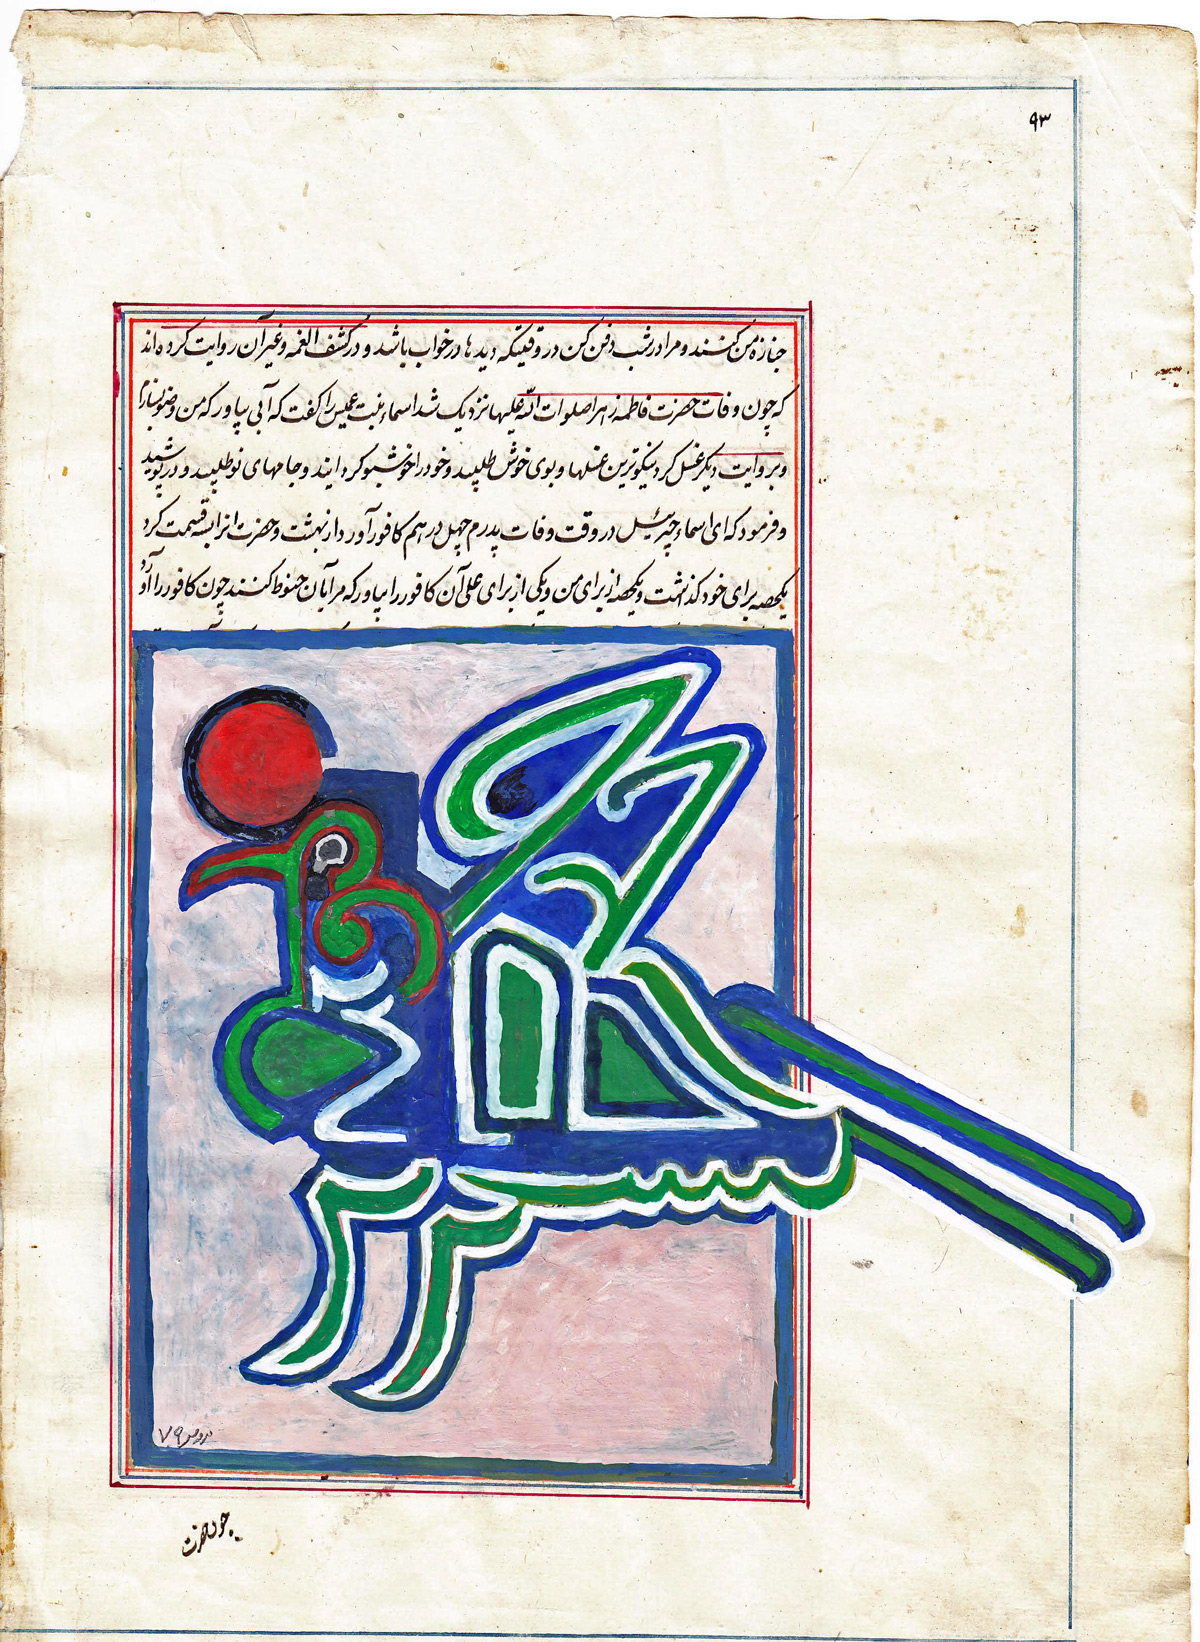 ۹۳
جنازه من کنند و مرا در شب دفن کن در وقتیکه دیدها در خواب باشد و در کشف الغمه و غیر آن روایت کرده اند
که چون وفات حضرت فاطمه زهرا صلوات الله علیها نزدیک شد اسماء بنت عمیس را کفت که آبی بیاور که من وضو بسازم
و بروایت دیکر غسل کرد نیکوترین غسلها و بوی خوش طلبید و خود را خوشبو کردانید و جامهای نو طلبید و در پوشید
و فرمود که ای اسماء جبرئیل در وقت وفات پدرم چهل درهم کافور آورد از بهشت و حضرت انرا بسه قسمت کرد
یکحصه برای خود کذاشت و یکحصه از برای من و یکی از برای علی آن کافور را بیاور که مرا بان حنوط کنند چون کافور را آورد
۷۹
چون حضرت